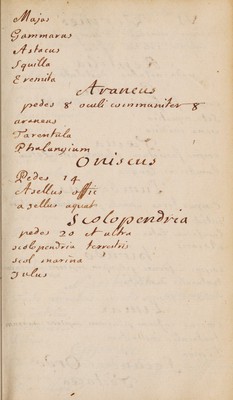 Majas
Gammarus
Astacus
Squilla
Eremita
Araneus
pedes 8 oculi communiter 8
araneus
Tarentula
Phalangium
Oniscus
Pedes 14
Asellus offic
asellus aquat
Scolopendria
pedes 20 et ultra
scolopendria terrestris
scol marina
Julus